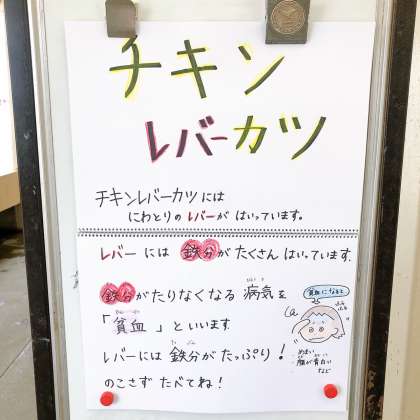 チキン
レバーカツ
チキンレバーカツには
にわとりのレバーが はいっています。
レバー には 鉄分が たくさん はいっています.
鉄分がたりなくなる 病気を
「貧血」といいます
レバーには 鉄分が たっぷり！
のこさず たべてね！
貧血になると
めまい
顔が青白い
など